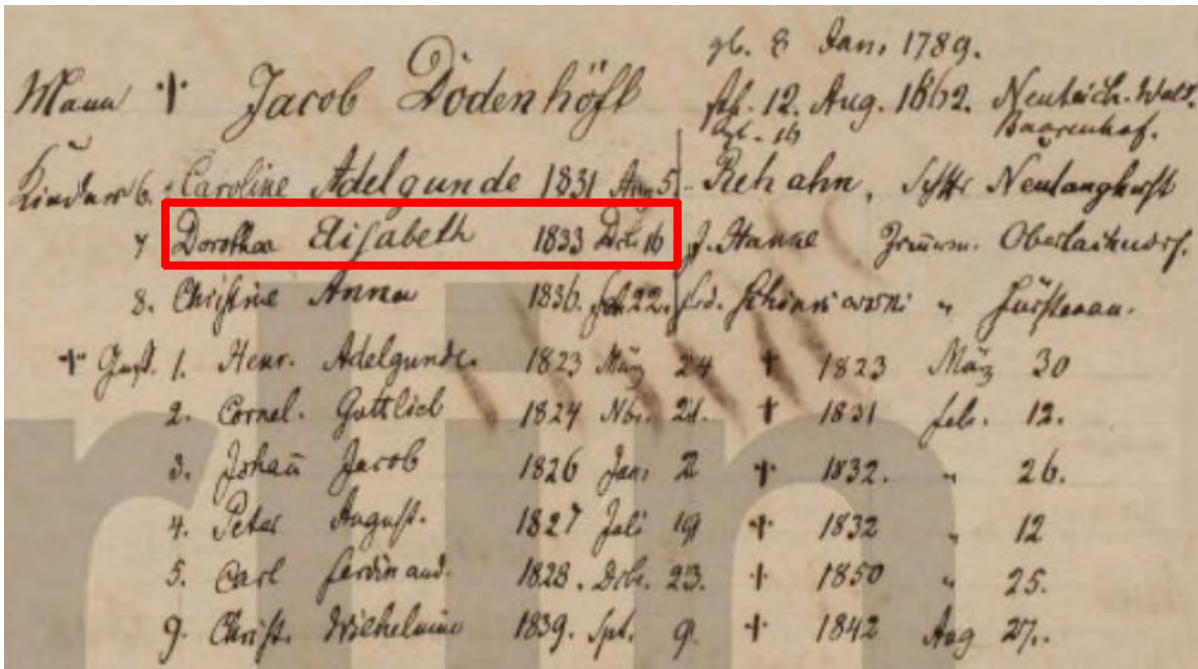 gb. 8 Jan. 1789.
Mann † Jacob Dodenhöft gst. 12. Aug. 1862. Neuteich. Wald.
Baarenhof.
Kinder 6. Caroline Adelgunde 1831 Aug 5. Rehahn, Neulanghorst
7 Dorothea Elisabeth 1833 Dcb. 16 J. Hanke Zimmerm. Oberlaskendorf.
8. Christine Anna 1836. 22. Frd. " Fürstenau.
† Gust. 1. Henr. Adelgunde. 1823 März 24 † 1823 März 30
2. Cornel. Gottlieb 1824 Nbr. 21. † 1831 feb. 12.
3. Johan̄ Jacob 1826 Jan. 2 † 1832. " 26.
4. Peter August. 1827 Juli 19 † 1832 " 12
5. Carl Ferdinand. 1828. Dcb. 23. † 1850 " 25.
9. Christ. Wilhelmine 1839. Spt. 9. † 1842 Aug 27.